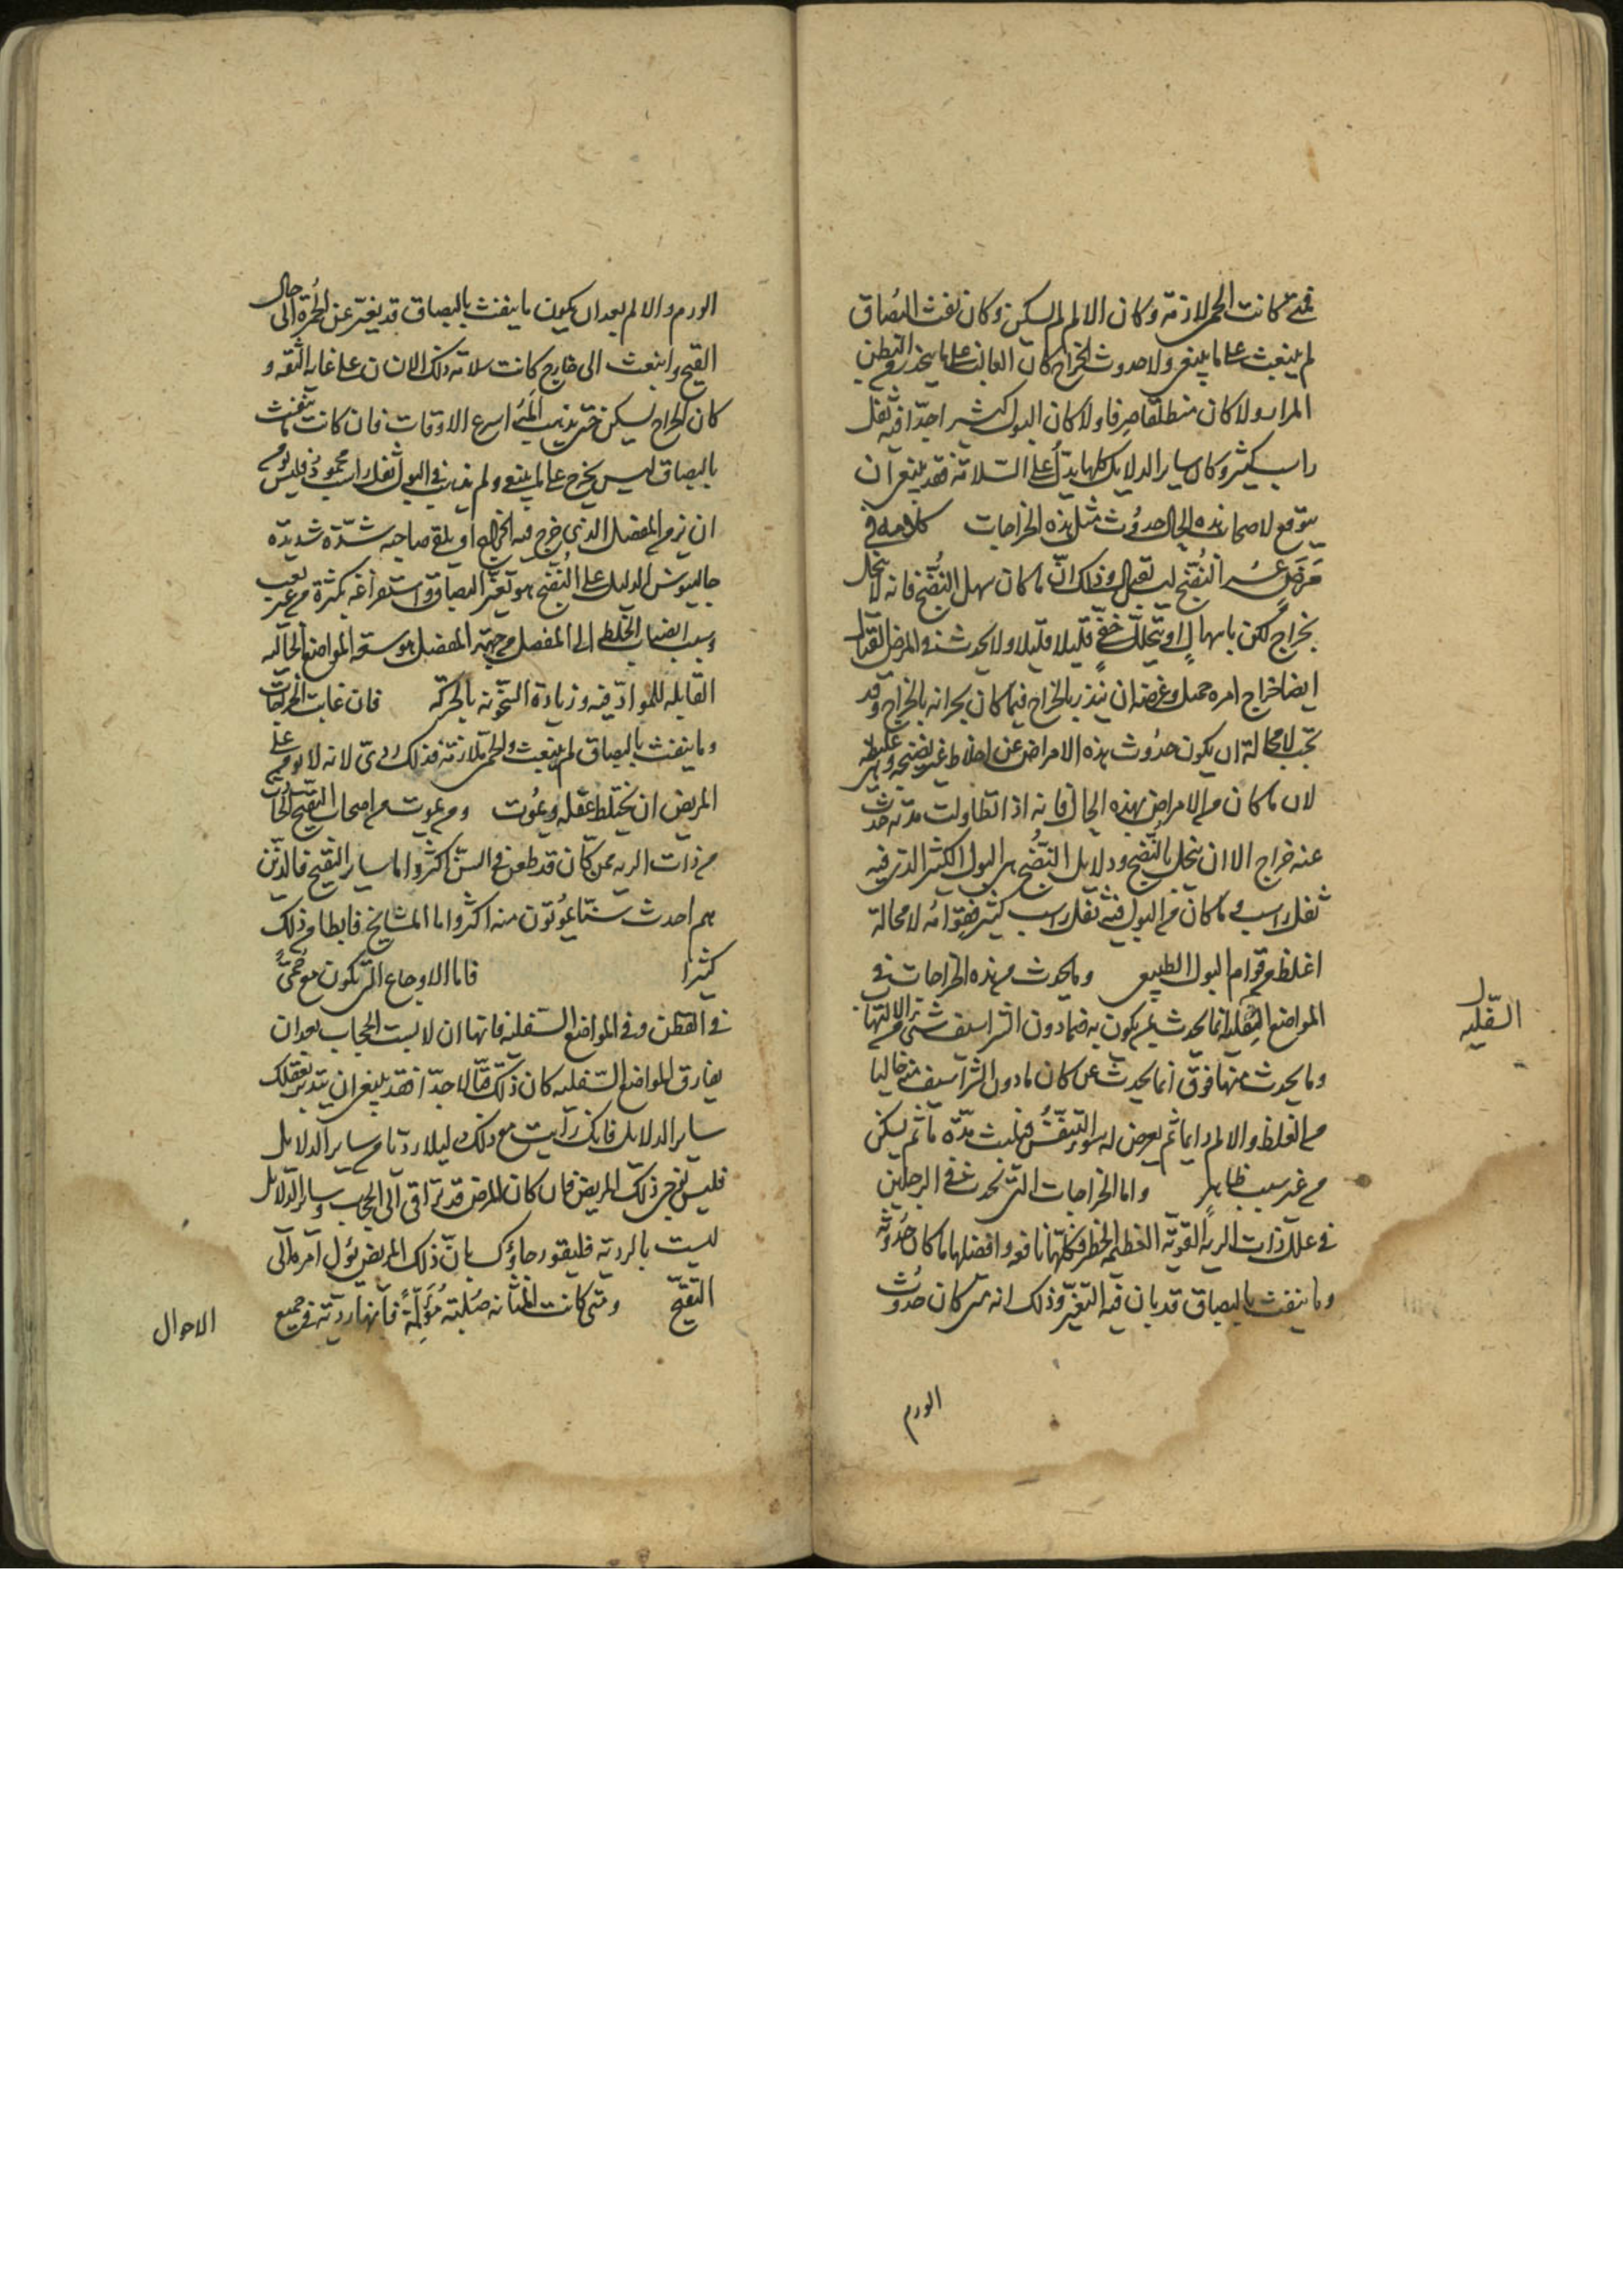 فمتى كانت الحمى لازمة وكان الالم لم يسكن وكان نفث البصاق
لم ينبعث على ما ينبغي ولا حدوث الخراج كان الغالب على ما ينحدر من البطن
المرار ولا كان منطلقا صرفا ولا كان البول كثيرا جدّا فيه ثفل
راسب كثير وكان ساير الدلايل كلها يدلّ على السلامة فقد ينبغي ان
يتوقع لاصحاب هذه الحال حدوث مثل هذه الخراجات كلامه في
مرض عسر النضج ليس يقبل وذلك انّ ما كان سهل النضج فانه لا ينحل
بخراج لكن باسهال او بتحلل خفي قليلا قليلا ولا يحدث في المرض القتال
ايضا خراج امره جميل وغرضه ان ينذر بالخراج فيما كان بحرانه بالخراج وقد
يجب لا محالة ان يكون حدوث هذه الامراض عن اخلاط غير نضيجة وهي غليظه
لان ما كان من الامراض بهذه الحال فانه اذا تطاولت مدته حدث
عنه خراج الا ان ينحل بالنضج ودلايل النضج هي البول الكثير الذي فيه
ثفل راسب وما كان من البول فيه ثفل راسب كثير فقوامه لا محالة
اغلظ من قوام البول الطبيعي وما يحدث من هذه الخراجات في
المواضع السفلية انما يحدث بمن يكون به فيما دون الشراسيف شيء من الالتهاب
وما يحدث منها فوق انما يحدث عن كان ما دون الشراسيف منه خاليا
من الغلظ والالم دايما ثم يعرض له سوء التنفس فيلبث مدّة ما ثم يسكن
من غير سبب ظاهر واما الخراجات التي تحدث في الرجلين
في علل ذات الرية القوية العظيمه الخطر فكلها نافعه وافضلها ما كان حدوثه
وما ينفث بالبصاق قد بان فيه التغيّر وذلك انه متى كان حدوث
الورم
السفليه
الورم والالم بعد ان يكون ما ينفث بالبصاق قد تغيّر عن الحُمرة الى حال
القيح وانبعث الى خارج كانت سلامة ذلك الانسان على غاية الثقه و
كان الخراج يسكن حتى يذهب المُه اسرع الاوقات فان كانت ما ينفث
بالبصاق ليس يخرج على ما ينبغي ولم يذهب في البول ثفل راسب محمود فليس يؤمن
ان يزمن المفصل الذي خرج فيه الخراج او يلقى صاحبه شدّة شديدة
جالينوس الدليل على النضج هو تغيّر البصاق واستفراغه بكثرة من غير تعب
وسبب انصباب الخلط الى المفصل من جهة المفصل هو سعة المواضع الخاليه
القابله للمواد فيه وزيادة السخونه بالحركه فان غابت الخراجات
وما ينفث بالبصاق لم ينبعث والحمى لازمة فذلك ردىّ لانه لا يؤمن على
المريض ان يختلط عقله ويموت ومن يموت من اصحاب التقيح الحادث
من ذات الريه ممن كان قد طعن في السنّ اكثر واما ساير التقيح فالذين
هم احدث سنّا يموتون منه اكثر واما المشايخ فابطا من ذلك
كثيرا فاما الاوجاع التي تكون مع حمىّ
في القطن وفي المواضع السفلية فانها ان لابست الحجاب بعد ان
يفارق المواضع السفليه كان ذلك قتّالا جدّا فقد ينبغي ان تتدبر بعقلك
ساير الدلايل فانك ان رايت مع ذلك دليلا رديّا من ساير الدلايل
فليس يُرجى ذلك المريض فان كان المرض قد تراقى الى الحجاب وساير الدلايل
ليست بالرديه فليقو رجاؤك بانّ ذلك المريض يؤل امره الى
التقيّح ومتى كانت المثانه صُلبته مُؤلمةً فانها رديّة في جميع
الاحوال